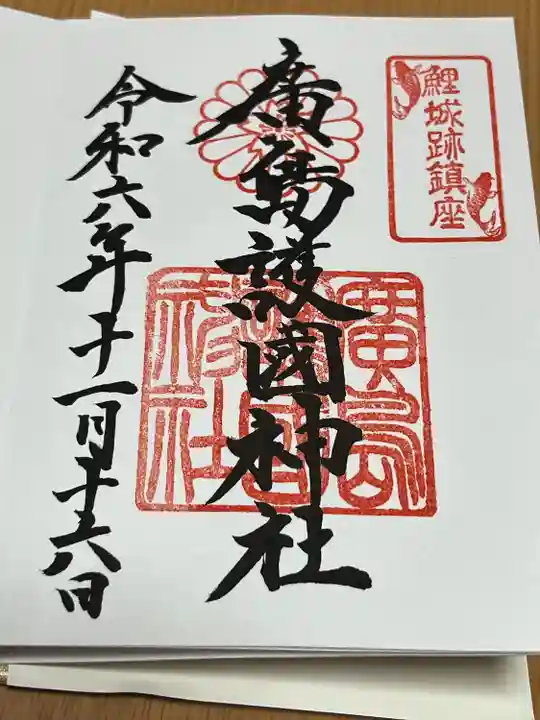 鯉城跡鎮座
廣島護國神社
廣島護國神社
令和六年十一月十六日